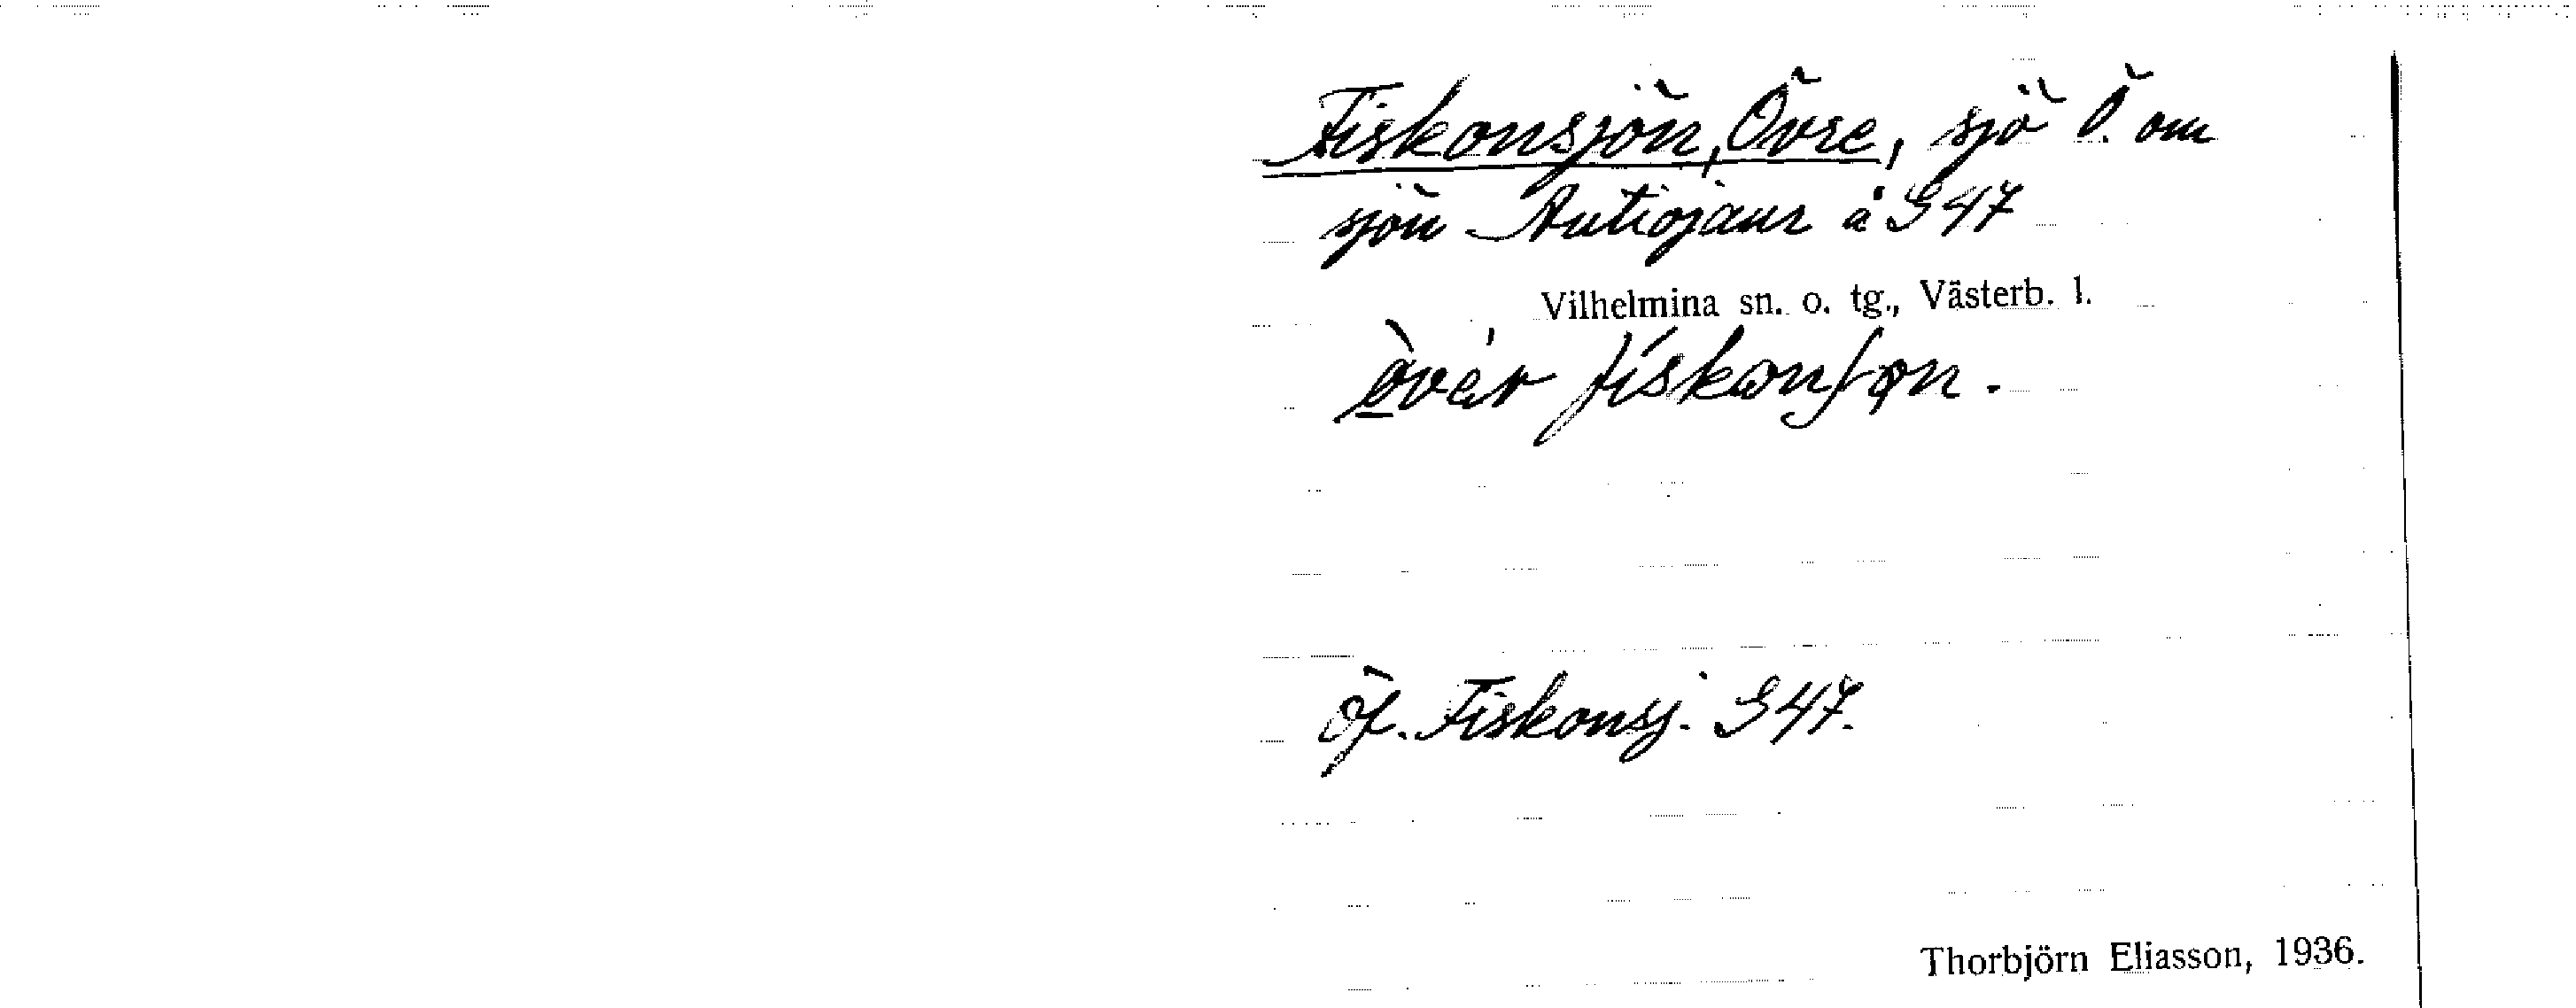 Fiskonsjön, Övre, sjö Ö. om
sjön Autiojaur å G47
Vilhelmina sn. o. tg., Västerb. l.
Öf. Fiskonsj. G47.
Thorbjörn Eliasson, 1936.